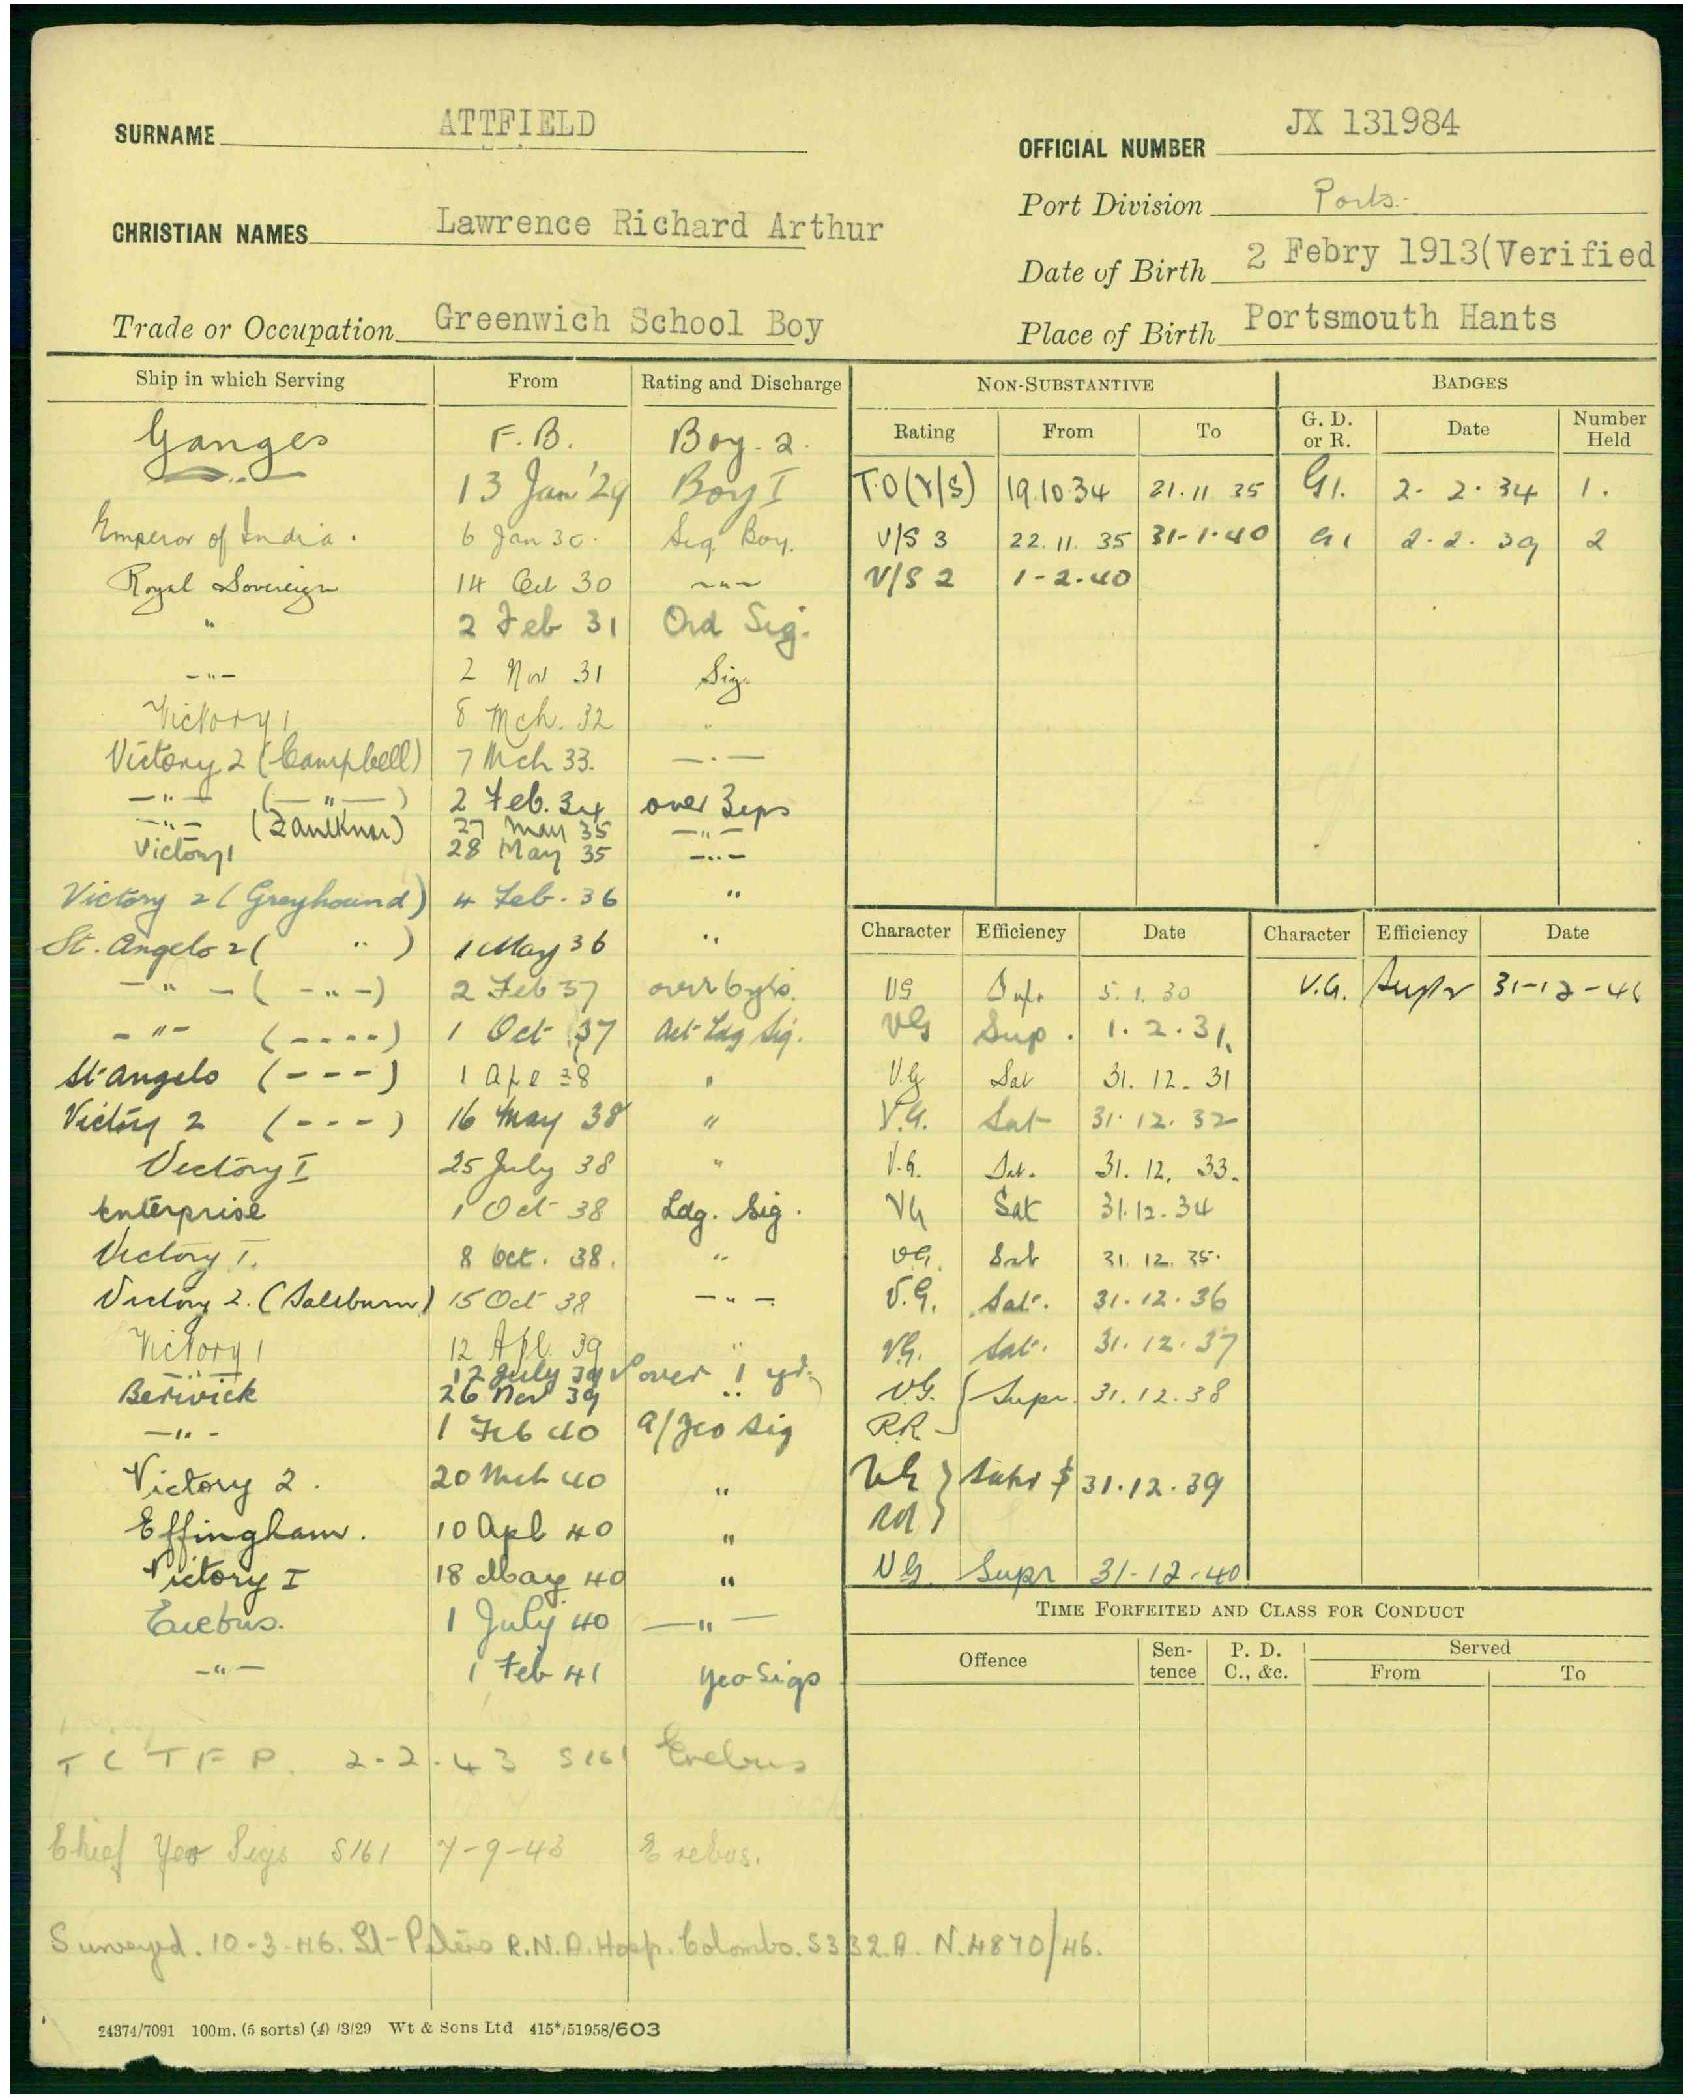 SURNAME ATTFIELD
OFFICIAL NUMBER JX 131984
Port Division Ports.
CHRISTIAN NAMES Lawrence Richard Arthur
Date of Birth 2 Febry 1913(Verified
Trade or Occupation Greenwich School Boy
Place of Birth Portsmouth Hants
Ship in which Serving From Rating and Discharge
Ganges F.B. Boy. 2.
13 Jan '29 Boy I
Emperor of India. 6 Jan 30. Sig. Boy.
Royal Sovereign 14 Oct 30 -"-
" 2 Feb 31 Ord Sig.
-"- 2 Nov 31 Sig.
Victory 1 8 Mch. 32 "
Victory 2 (Campbell) 7 Mch 33. -"-
-"- (-"-) 2 Feb. 34 over 3 yrs
-"- (Faulknor) 27 May 35 -"-
Victory 1 28 May 35 -"-
Victory 2 (Greyhound) 4 Feb. 36 "
St. Angelo 2 ( " ) 1 May 36 "
-"- (-"-) 2 Feb 37 over 6 yrs.
-"- (----) 1 Oct 37 Act Ldg Sig.
St Angelo (---) 1 Apl 38 "
Victory 2 (---) 16 May 38 "
Victory I 25 July 38 "
Enterprise 1 Oct 38 Ldg. Sig.
Victory I. 8 Oct. 38. "
Victory 2. (Saltburn) 15 Oct 38 -"-
Victory 1 12 Apl. 39 "
-"- 12 July 39 over 1 yr.
Berwick 26 Nov 39 "
-"- 1 Feb 40 A/Yeo Sig
Victory 2. 20 Mch 40 "
Effingham. 10 Apl 40 "
Victory I 18 May 40 "
Erebus. 1 July 40 -"-
-"- 1 Feb 41 Yeo Sigs
T C T F P. 2-2-43 S161 Erebus
Chief Yeo Sigs S161 7-9-43 Erebus.
Surveyed. 10-3-46. St-Peters R.N.A. Hosp. Colombo. S332.A. N.4870/46.
24374/7091 100m. (5 sorts) (4) /3/29 Wt & Sons Ltd 415*/51958/603
NON-SUBSTANTIVE
Rating From To
T.O (V/S) 19.10.34 21.11.35
V/S 3 22.11.35 31-1-40
V/S 2 1-2-40
BADGES
G. D. or R. Date Number Held
G1. 2-2-34 1.
G1 2-2-39 2
Character Efficiency Date
VG Sup. 5.1.30
VG Sup. 1.2.31.
V.G Sat 31.12.31
V.G. Sat 31.12.32
V.G. Sat. 31.12.33.
VG Sat 31.12.34
V.G. Sat 31.12.35.
V.G. Sat. 31.12.36
VG. Sat. 31.12.37
V.G. Supr. 31.12.38
RR
VG 31.12.39
VG Supr 31-12-40
Character Efficiency Date
V.G. Supr
TIME FORFEITED AND CLASS FOR CONDUCT
Offence Sentence P. D. C., &c. Served
From To